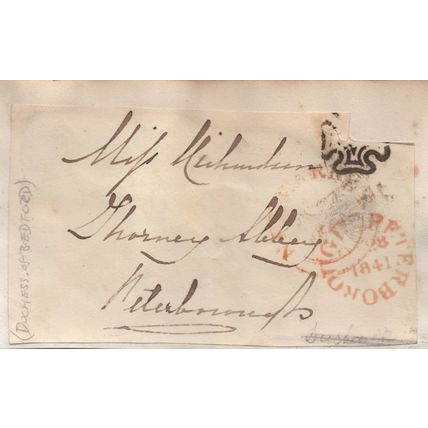 Miss Richardson
Thorney Abbey
Peterborough
(DUCHESS OF BEDFORD)
PETERBOROUGH
28
1841